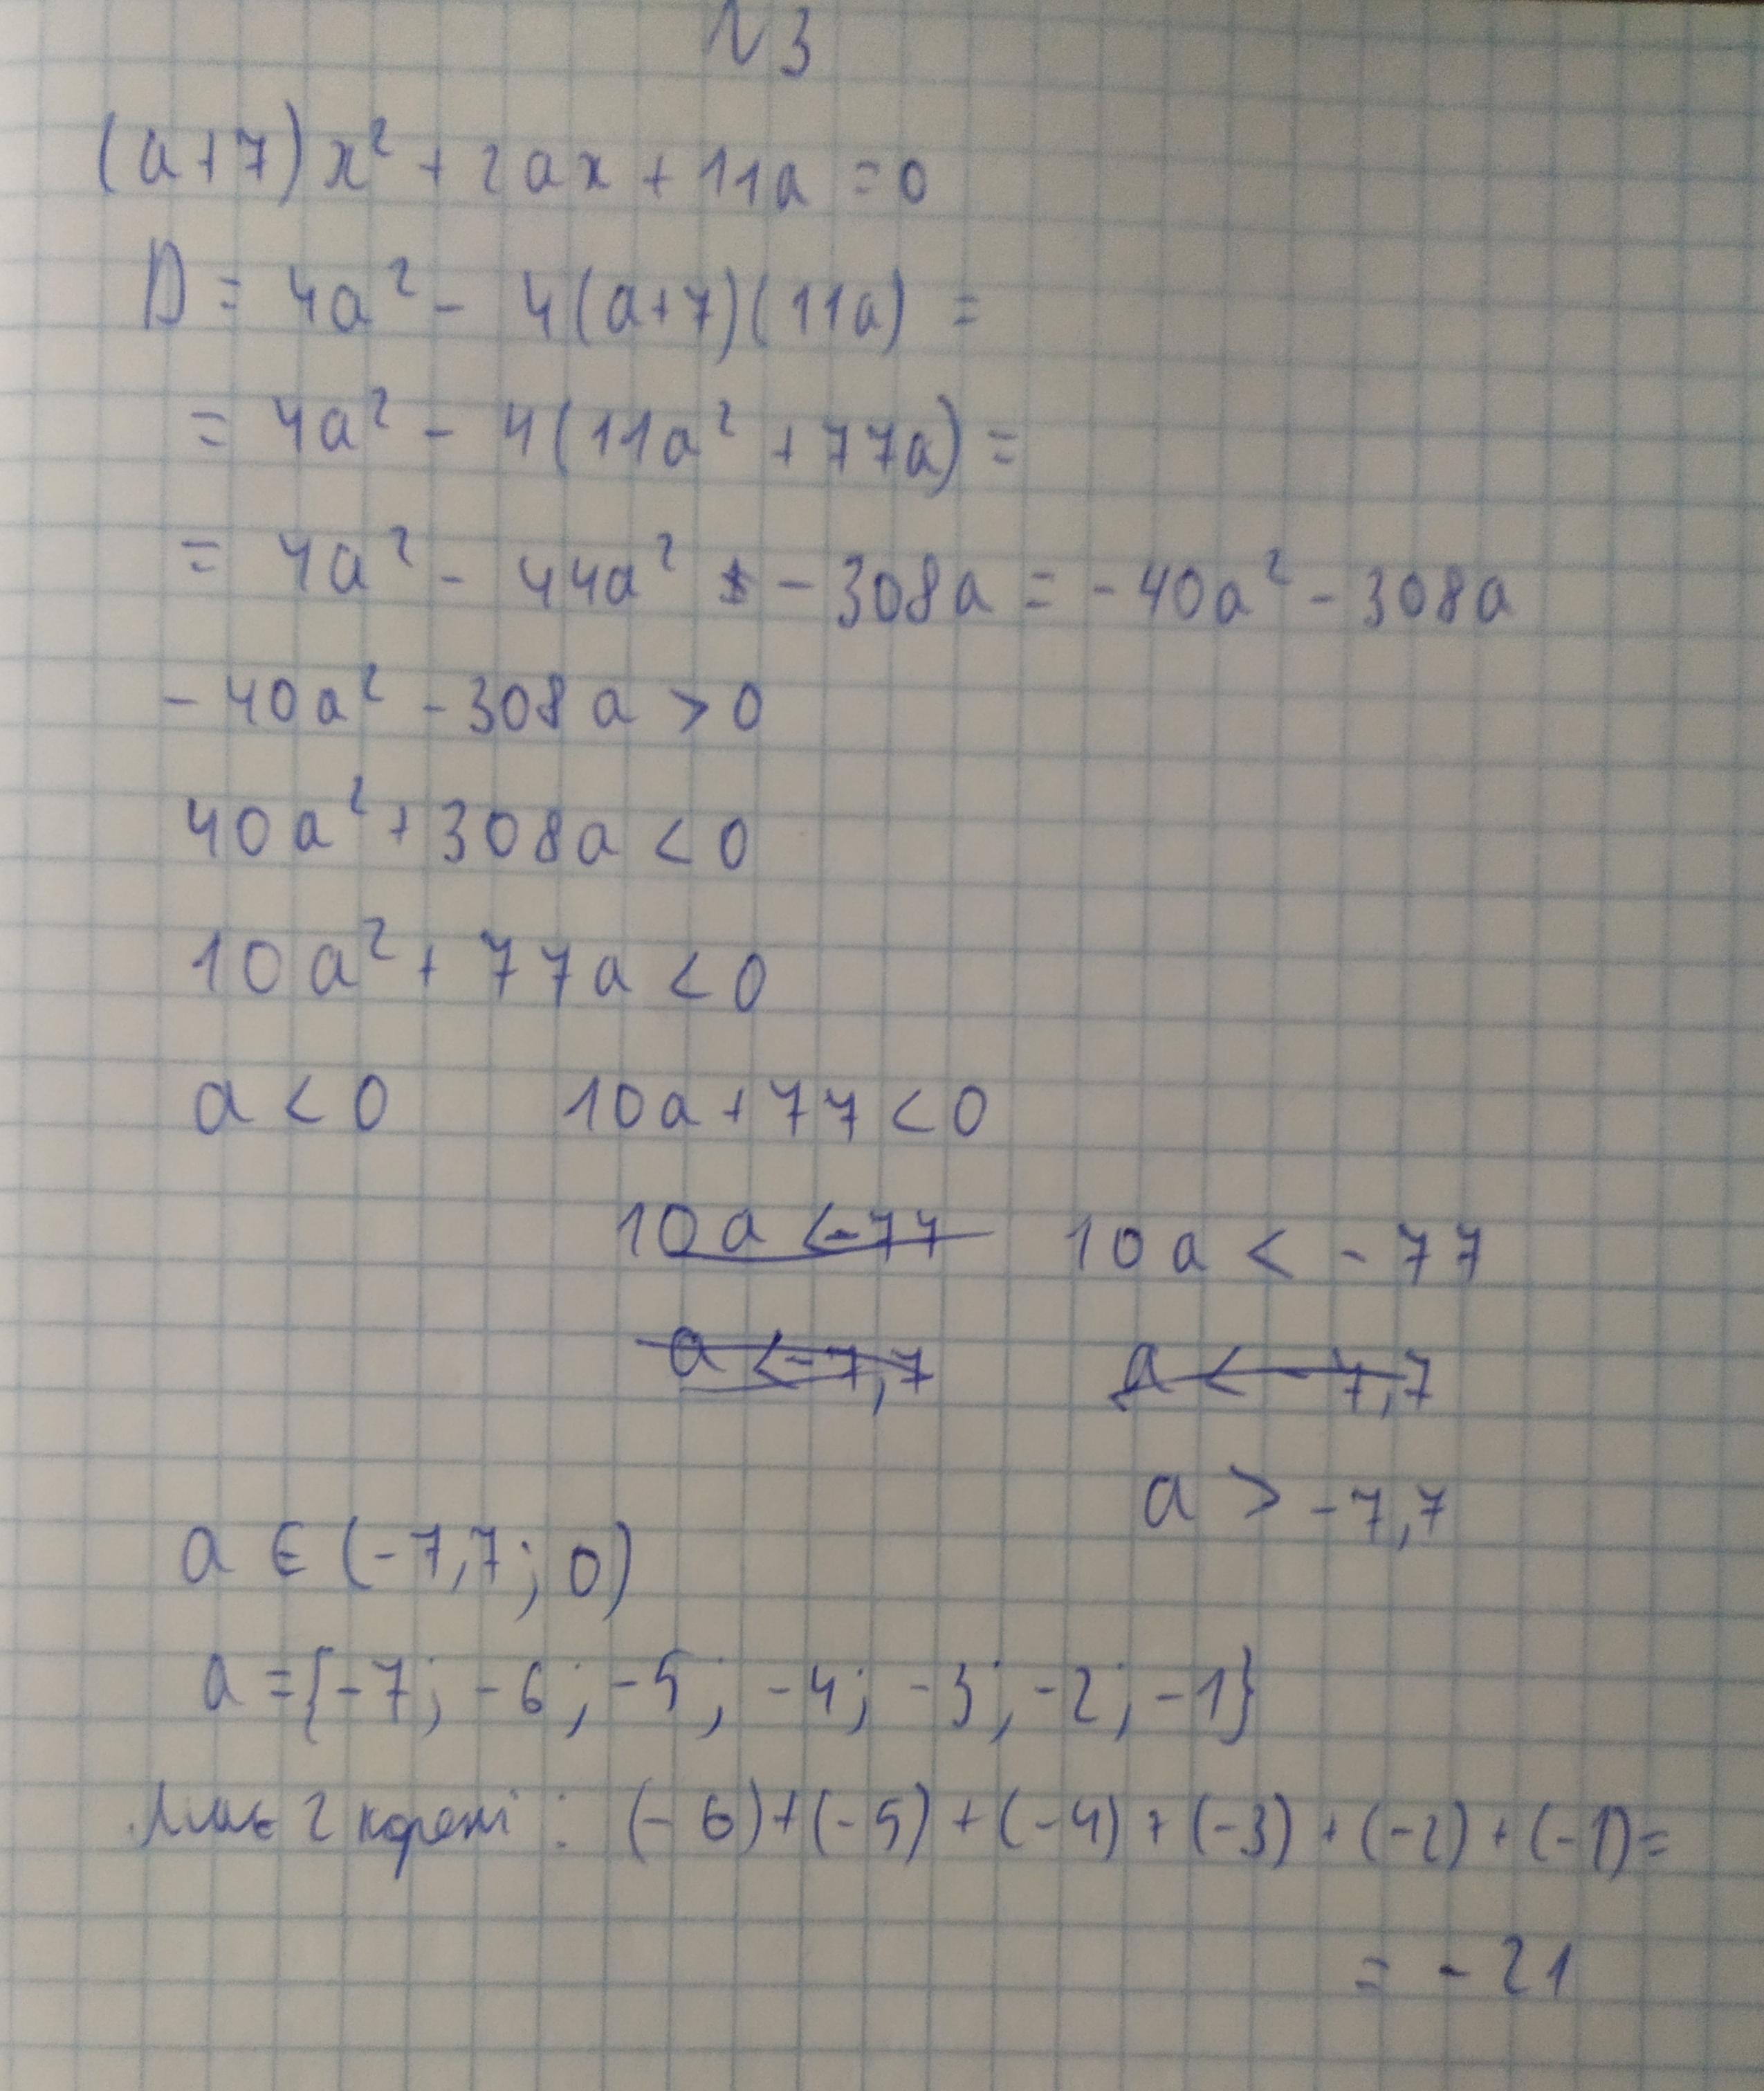 №3
(a+7)x² + 2ax + 11a = 0
D = 4a² - 4(a+7)(11a) =
= 4a² - 4(11a² + 77a) =
= 4a² - 44a² - 308a = -40a² - 308a
-40a² - 308a > 0
40a² + 308a < 0
10a² + 77a < 0
a < 0 10a + 77 < 0
10a < -77 10a < -77
a < -7,7 a < -7,7
a > -7,7
a ∈ (-7,7; 0)
a = {-7; -6; -5; -4; -3; -2; -1}
Має 2 корені: (-6)+(-5)+(-4)+(-3)+(-2)+(-1)=
= -21